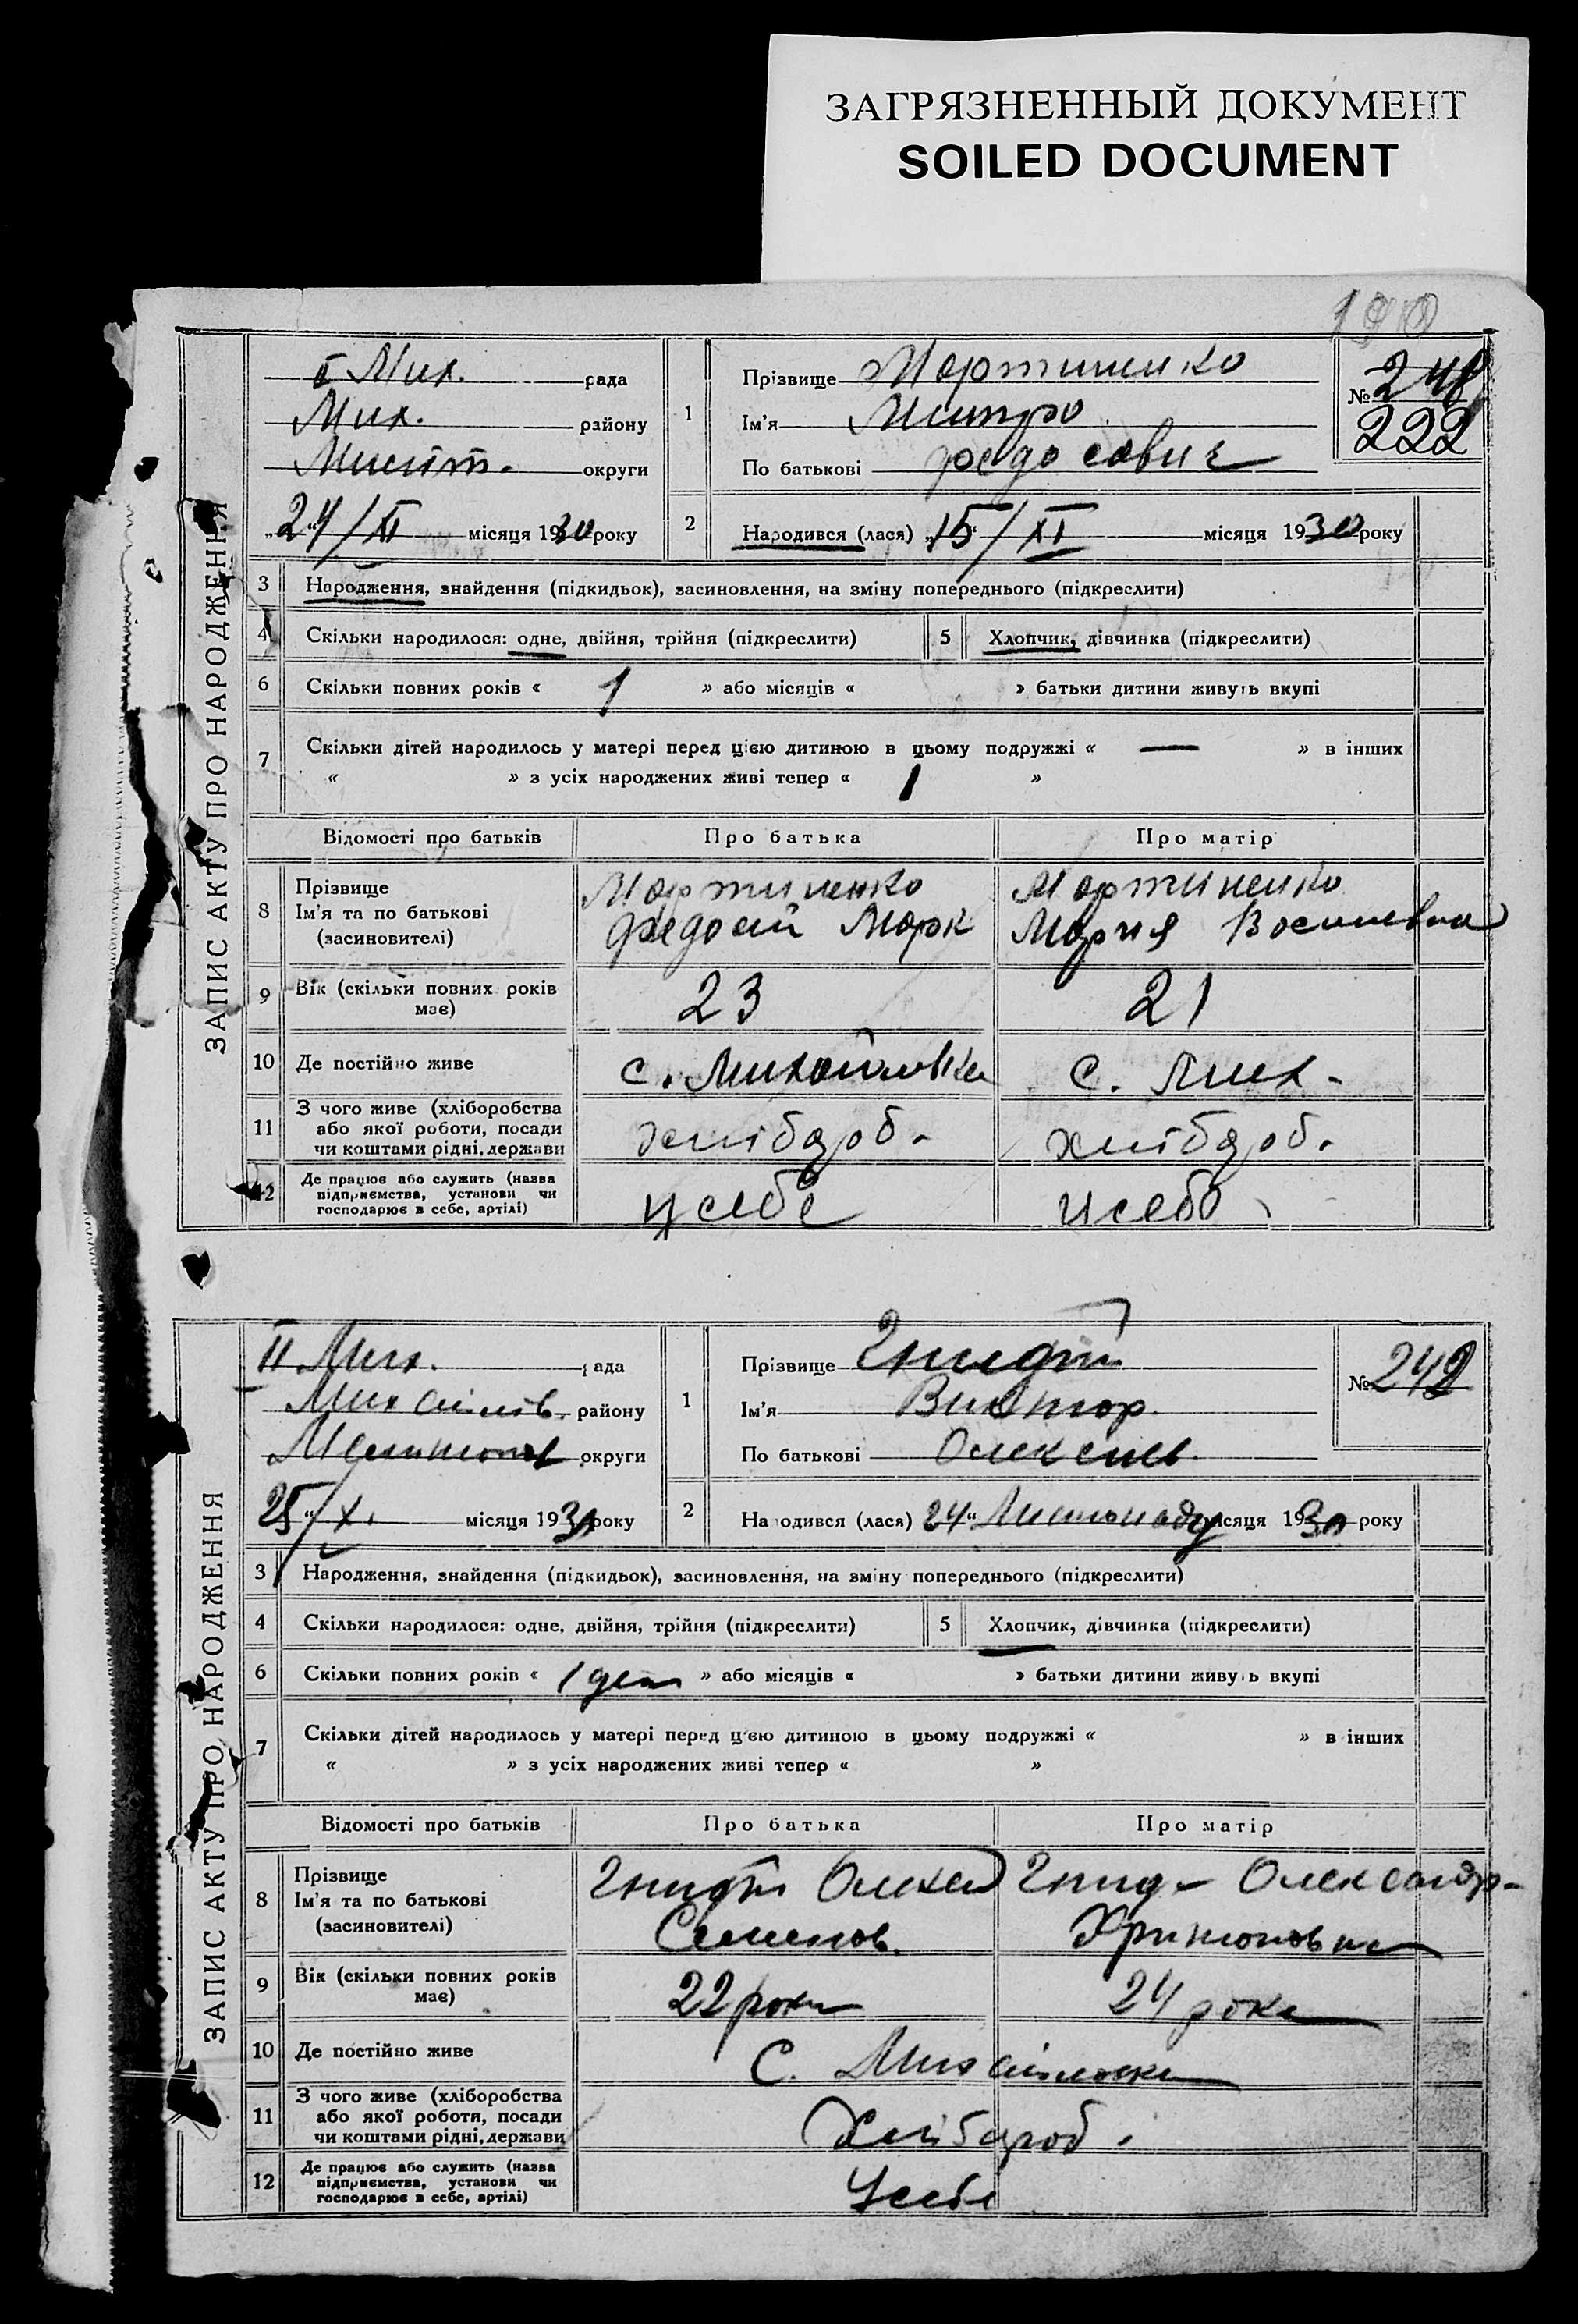 ЗАГРЯЗНЕННЫЙ ДОКУМЕНТ
SOILED DOCUMENT
ЗАПИС АКТУ ПРО НАРОДЖЕННЯ
І Мих. рада
Мих. району
округи
„24/XI місяця 1930 року
1
Прізвище Мартиненко
Ім'я Митро
По батькові Федосович
№ 248
222
2
Народився (лася) „15"/XI місяця 1930 року
3 Народження, знайдення (підкидьок), засиновлення, на зміну попереднього (підкреслити)
4 Скільки народилося: одне, двійня, трійня (підкреслити) 5 Хлопчик, дівчинка (підкреслити)
6 Скільки повних років « 1 » або місяців « » батьки дитини живуть вкупі
7 Скільки дітей народилось у матері перед цією дитиною в цьому подружжі « — » в інших
« » з усіх народжених живі тепер « 1 »
Відомості про батьків Про батька Про матір
8 Прізвище Мартиненко Мартиненко
Ім'я та по батькові Федосій Марк Мария Василевна
(засиновителі)
9 Вік (скільки повних років має) 23 21
10 Де постійно живе с. Михайловка с. Мих.
11 З чого живе (хліборобства
або якої роботи, посади хлібороб. хлібороб.
чи коштами рідні, держави
12 Де працює або служить (назва
підприємства, установи чи у себе у себе
господарює в себе, артілі)
ЗАПИС АКТУ ПРО НАРОДЖЕННЯ
ІІ Мих. рада
Михайлів. району
округи
25/X. місяця 1930 року
1
Прізвище
Ім'я Виктор
По батькові Олексієв.
№ 242
2
Народився (лася) 24" Листопаду місяця 1930 року
3 Народження, знайдення (підкидьок), засиновлення, на зміну попереднього (підкреслити)
4 Скільки народилося: одне, двійня, трійня (підкреслити) 5 Хлопчик, дівчинка (підкреслити)
6 Скільки повних років « 1 ден » або місяців « » батьки дитини живуть вкупі
7 Скільки дітей народилось у матері перед цією дитиною в цьому подружжі « » в інших
« » з усіх народжених живі тепер « »
Відомості про батьків Про батька Про матір
8 Прізвище Олексій Олександр-
Ім'я та по батькові Семенов.
(засиновителі)
9 Вік (скільки повних років має) 22 роки 24 роки
10 Де постійно живе С. Михайловка
11 З чого живе (хліборобства
або якої роботи, посади Хлібороб.
чи коштами рідні, держави
12 Де працює або служить (назва
підприємства, установи чи У себе
господарює в себе, артілі)